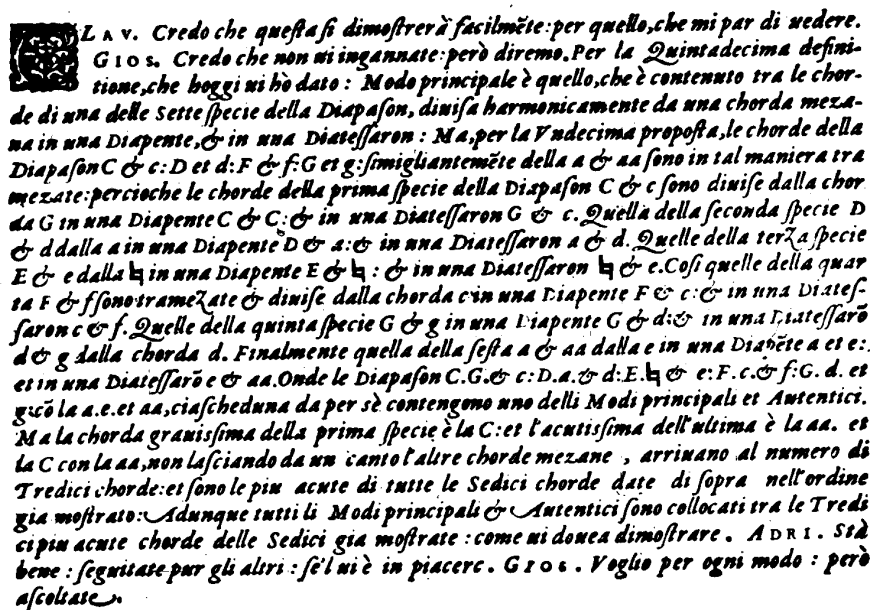 CLAV. Credo che queſta ſi dimoſtrerà facilmẽte: per quello, che mi par di uedere.
GIOS. Credo che non ui ingannate: però diremo. Per la Quintadecima defini-
tione, che hoggi ui hò dato : Modo principale è quello, che è contenuto tra le chor-
de di una delle Sette ſpecie della Diapaſon, diuiſa harmonicamente da una chorda meza-
na in una Diapente, & in una Diateſſaron : Ma, per la Vndecima propoſta, le chorde della
Diapaſon C & c: D et d: F & f: G et g: ſimigliantemẽte della a & aa ſono in tal maniera tra
mezate: percioche le chorde della prima ſpecie della Diapaſon C & c ſono diuiſe dalla chor
da G in una Diapente C & C: & in una Diateſſaron G & c. Quella della ſeconda ſpecie D
& d dalla a in una Diapente D & a: & in una Diateſſaron a & d. Quelle della terza ſpecie
E & e dalla ♮ in una Diapente E & ♮ : & in una Diateſſaron ♮ & e. Coſi quelle della quar
ta F & f ſono tramezate & diuiſe dalla chorda c in una Diapente F & c: & in una Diateſ-
ſaron c & f. Quelle della quinta ſpecie G & g in una Diapente G & d: & in una Diateſſarõ
d & g dalla chorda d. Finalmente quella della ſeſta a & aa dalla e in una Diapẽte a et e:
et in una Diateſſarõ e & aa. Onde le Diapaſon C.G. & c: D.a. & d: E.♮ & e: F.c. & f: G. d. et
g: cõ la a.e. et aa, ciaſcheduna da per sè contengono uno delli Modi principali et Autentici.
Ma la chorda grauiſſima della prima ſpecie è la C: et l'acutiſſima dell'ultima è la aa. et
la C con la aa, non laſciando da un canto l'altre chorde mezane , arriuano al numero di
Tredici chorde: et ſono le piu acute di tutte le Sedici chorde date di ſopra nell'ordine
gia moſtrato: Adunque tutti li Modi principali & Autentici ſono collocati tra le Tredi
ci piu acute chorde delle Sedici gia moſtrate : come ui douea dimoſtrare . ADRI. Stà
bene : ſeguitate pur gli altri : ſe'l ui è in piacere. GIOS. Voglio per ogni modo : però
aſcoltate.